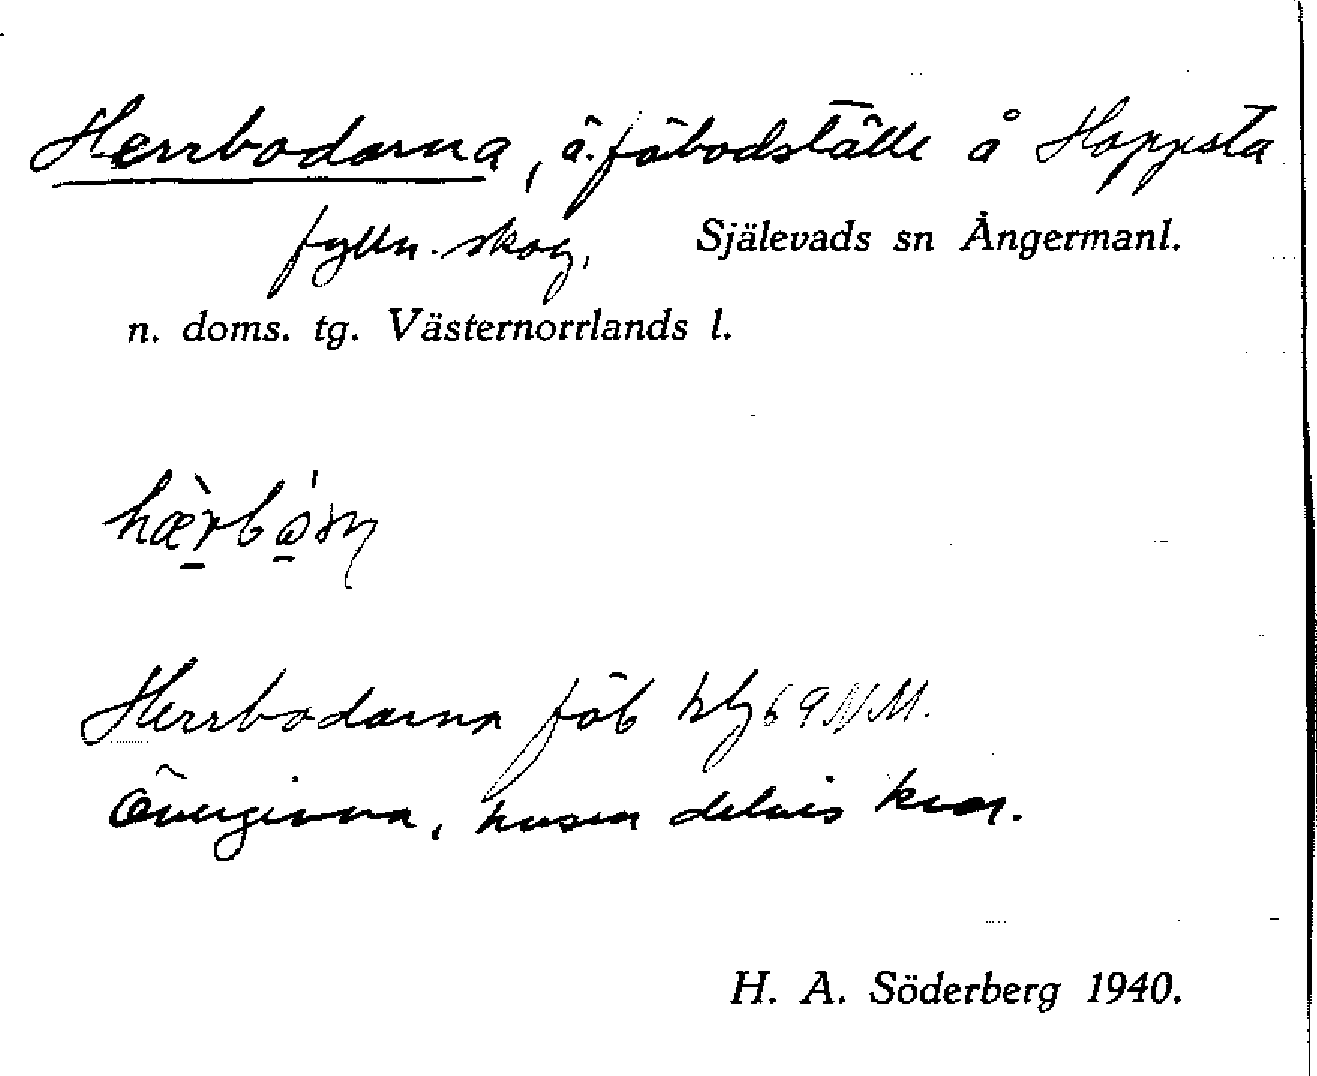 Herrbodarna, ä. fäbodställe å Hoppsta
fylln. skog, Själevads sn Ångermanl.
n. doms. tg. Västernorrlands l.
Herrbodarna fäb
Övergivna, husen delvis kvar.
H. A. Söderberg 1940.